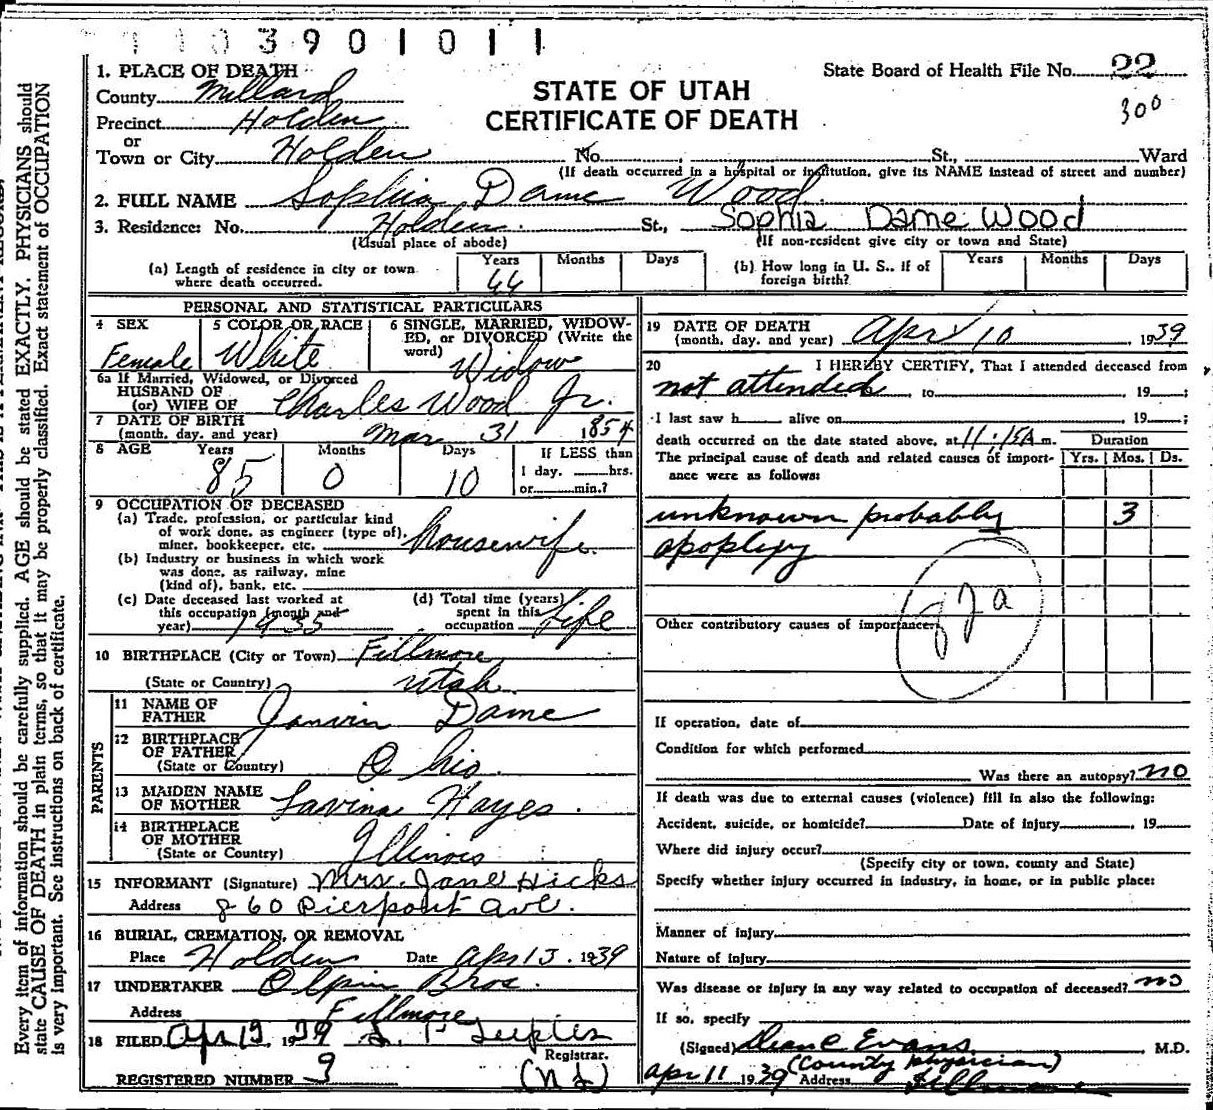 1103901011
1. PLACE OF DEATH
County Millard
Precinct Holden
or
Town or City Holden No. , St., Ward
(If death occurred in a hospital or institution, give its NAME instead of street and number)
STATE OF UTAH
CERTIFICATE OF DEATH
State Board of Health File No. 22
300
2. FULL NAME Sophia Dame Wood
3. Residence: No. Holden. St., Sophia Dame Wood
(Usual place of abode) (If non-resident give city or town and State)
(a) Length of residence in city or town where death occurred. Years 66 Months Days
(b) How long in U. S., if of foreign birth? Years Months Days
PERSONAL AND STATISTICAL PARTICULARS
4 SEX Female
5 COLOR OR RACE White
6 SINGLE, MARRIED, WIDOWED, or DIVORCED (Write the word) Widow
6a If Married, Widowed, or Divorced
HUSBAND OF
(or) WIFE OF Charles Wood Jr.
7 DATE OF BIRTH
(month, day, and year) Mar 31 1854
8 AGE Years 85 Months 0 Days 10 If LESS than 1 day, hrs. or min.?
9 OCCUPATION OF DECEASED
(a) Trade, profession, or particular kind of work done, as engineer (type of), miner, bookkeeper, etc. housewife.
(b) Industry or business in which work was done, as railway, mine (kind of), bank, etc.
(c) Date deceased last worked at this occupation (month and year) 1935
(d) Total time (years) spent in this occupation Life
10 BIRTHPLACE (City or Town) Fillmore
(State or Country) Utah
PARENTS
11 NAME OF FATHER Janvrin Dame
12 BIRTHPLACE OF FATHER (State or Country) Ohio
13 MAIDEN NAME OF MOTHER Lavina Hayes.
14 BIRTHPLACE OF MOTHER (State or Country) Illinois
15 INFORMANT (Signature) Mrs. Jane Hicks
Address 860 Pierpont Ave.
16 BURIAL, CREMATION, OR REMOVAL
Place Holden Date Apr 13, 1939
17 UNDERTAKER Olpin Bros.
Address Fillmore
18 FILED Apr 13 1939
Registrar.
REGISTERED NUMBER 9
19 DATE OF DEATH
(month, day, and year) Apr 10, 1939
20 I HEREBY CERTIFY, That I attended deceased from
not attended, to , 19 ;
I last saw h alive on 19 ;
death occurred on the date stated above, at 11:15 A m.
The principal cause of death and related causes of importance were as follows:
Duration
Yrs. Mos. Ds.
unknown probably 3
apoplexy
Other contributory causes of importance:
If operation, date of
Condition for which performed
Was there an autopsy? no
If death was due to external causes (violence) fill in also the following:
Accident, suicide, or homicide? Date of injury , 19
Where did injury occur?
(Specify city or town, county and State)
Specify whether injury occurred in industry, in home, or in public place:
Manner of injury
Nature of injury
Was disease or injury in any way related to occupation of deceased? no
If so, specify
(Signed) Evans , M.D.
(County physician)
Apr 11 1939 Address Fillmore
Every item of information should be carefully supplied. AGE should be stated EXACTLY. PHYSICIANS should
state CAUSE OF DEATH in plain terms, so that it may be properly classified. Exact statement of OCCUPATION
is very important. See instructions on back of certificate.